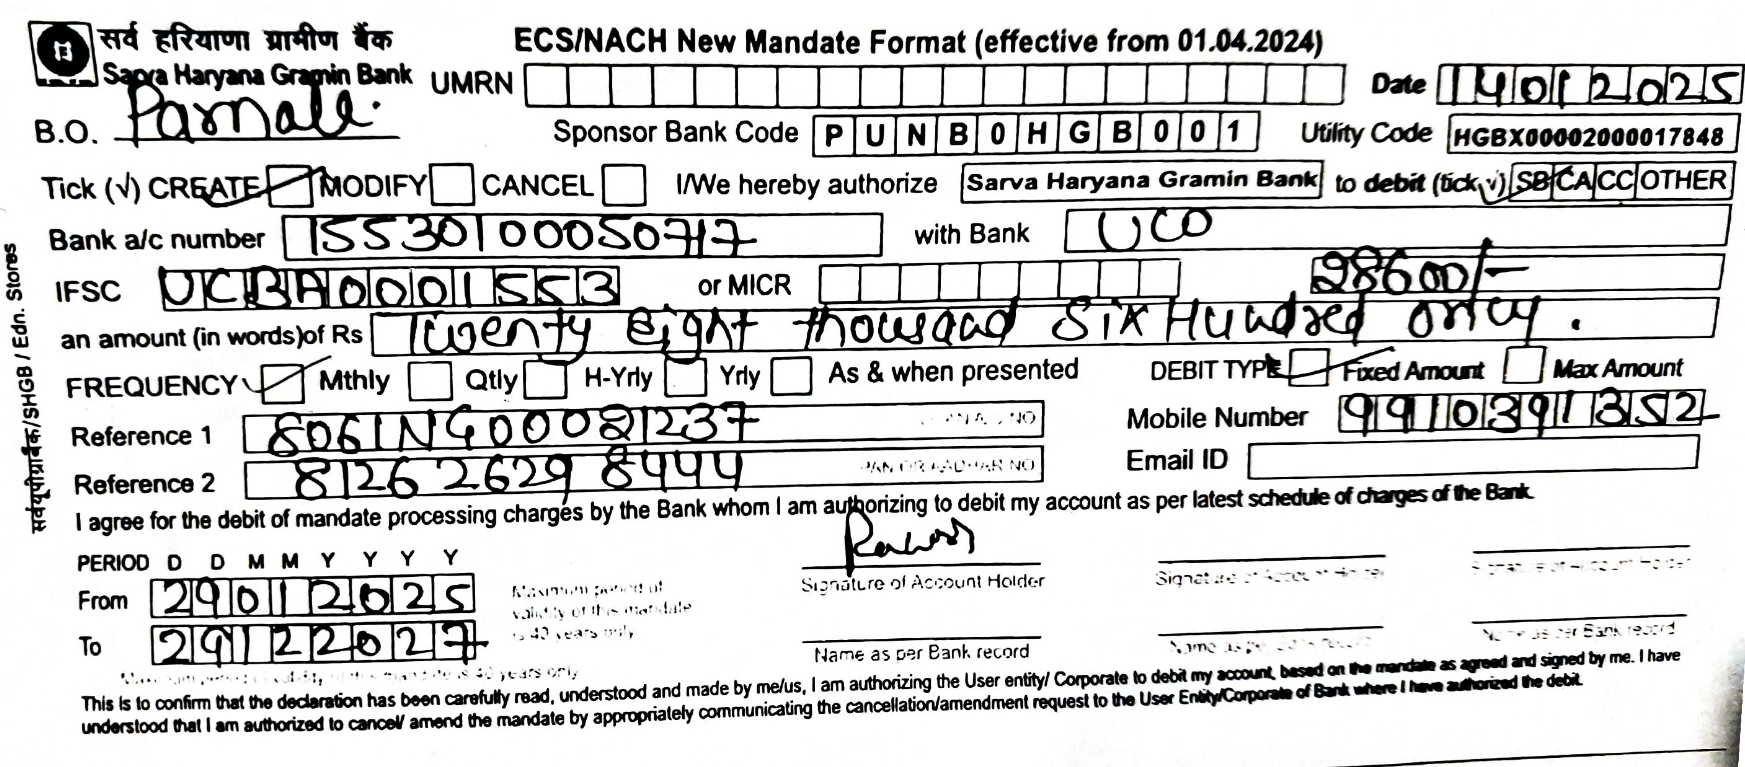 सर्व हरियाणा ग्रामीण बैंक
Sarva Haryana Gramin Bank
ECS/NACH New Mandate Format (effective from 01.04.2024)
UMRN Date 14012025
B.O. Parnala. Sponsor Bank Code PUNB0HGB001 Utility Code HGBX00002000017848
Tick (√) CREATE MODIFY CANCEL I/We hereby authorize Sarva Haryana Gramin Bank to debit (tick √) SB CA CC OTHER
Bank a/c number 15530100050717 with Bank UCO
IFSC UCBA0001553 or MICR 28600/-
an amount (in words)of Rs Twenty eight thousand Six Hundred only.
FREQUENCY Mthly Qtly H-Yrly Yrly As & when presented DEBIT TYPE Fixed Amount Max Amount
Reference 1 8061NG00081237 Mobile Number 9910391352
Reference 2 8126 2629 8444 PAN OR AADHAR NO Email ID
I agree for the debit of mandate processing charges by the Bank whom I am authorizing to debit my account as per latest schedule of charges of the Bank.
PERIOD D D M M Y Y Y Y
From 29012025
To 29122027
Maximum period of
validity of this mandate
is 40 years only
Signature of Account Holder Signature of Account Holder Signature of Account Holder
Name as per Bank record Name as per Bank record Name as per Bank record
Maximum period of validity of this mandate is 40 years only
This is to confirm that the declaration has been carefully read, understood and made by me/us, I am authorizing the User entity/ Corporate to debit my account, based on the mandate as agreed and signed by me. I have
understood that I am authorized to cancel/ amend the mandate by appropriately communicating the cancellation/amendment request to the User Entity/Corporate of Bank where I have authorized the debit.
/SHGB / Edn. Stores